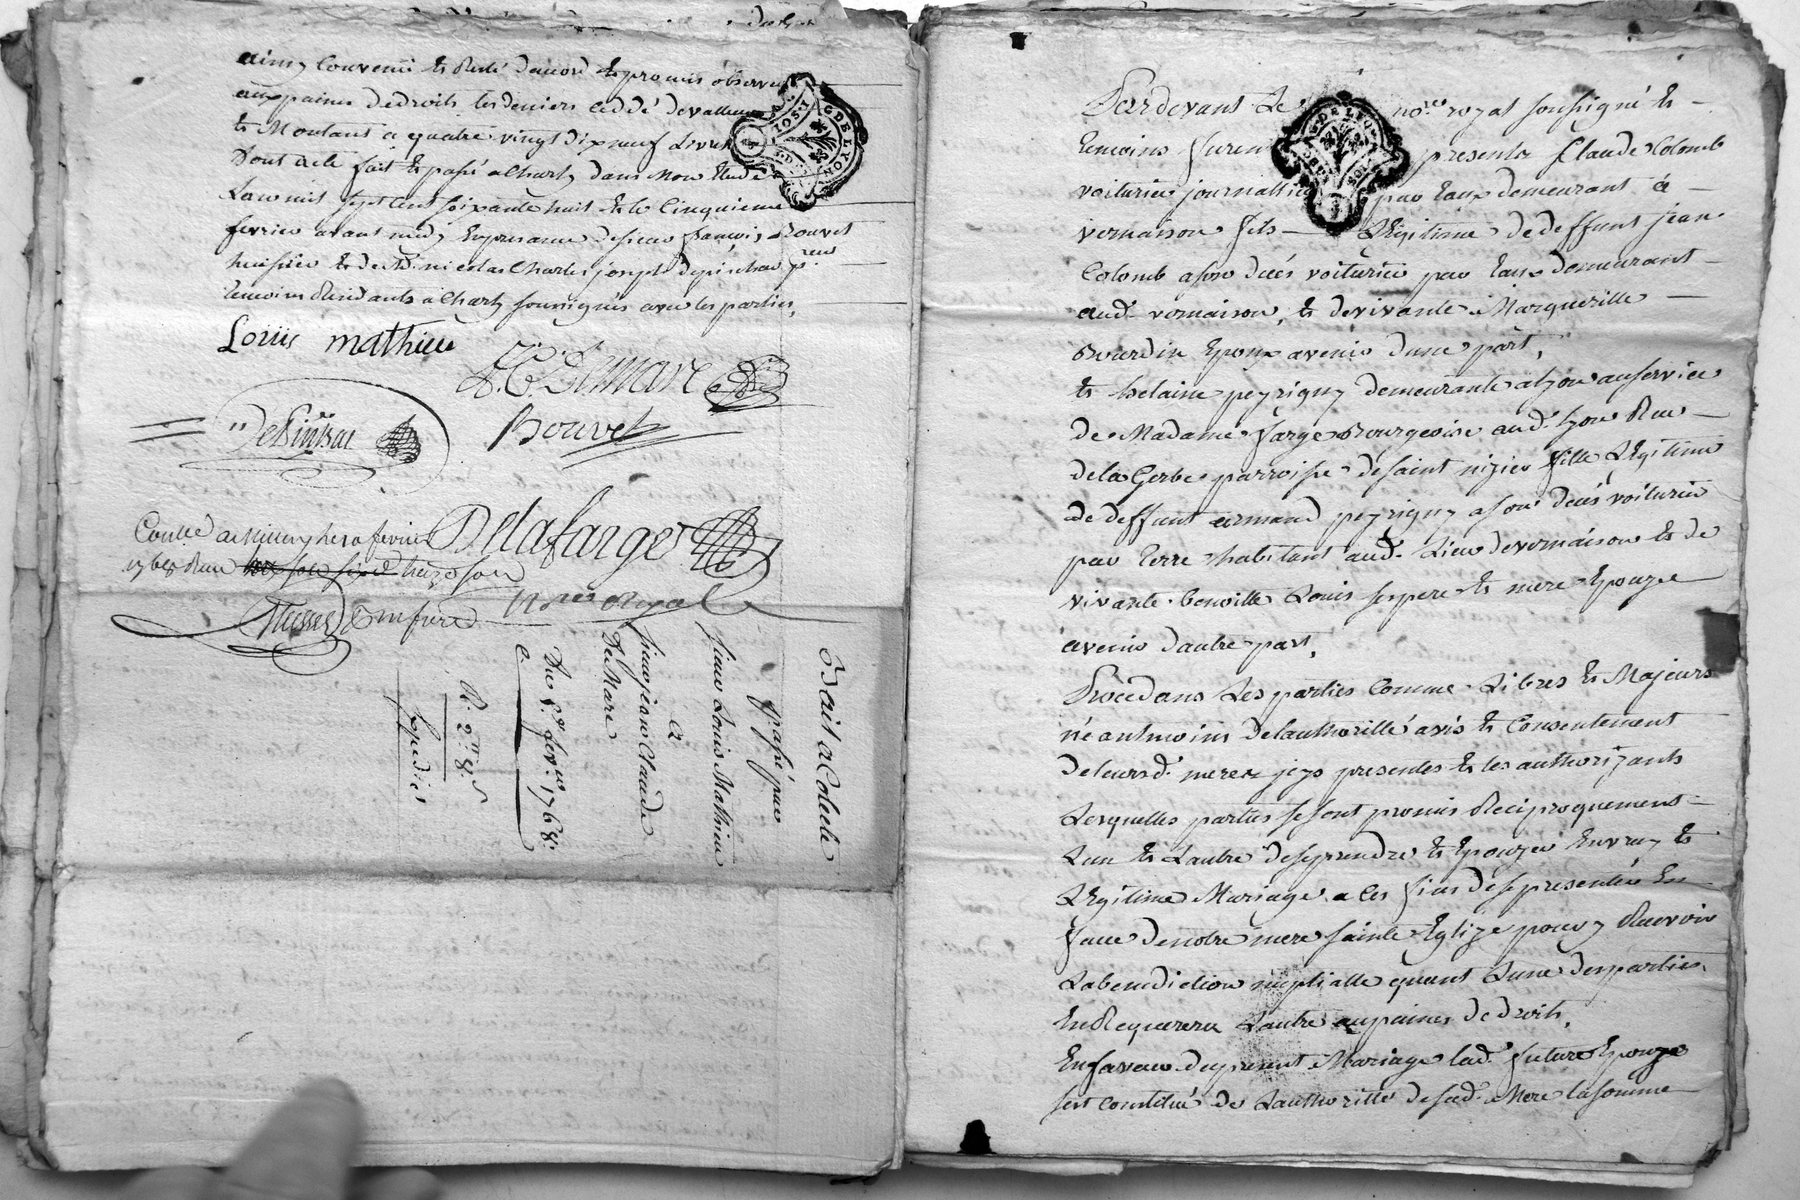 ainsy Convenu et Resté daccord et promis observer
aux paines de droits les deniers ceddé de valleur
et Montant a quatre vingt dix neuf Livres
Dont acte fait et passé a Charly dans Mon Etude
Lan mil sept cent soixante huit et le Cinquieme
fevrier avant midy En presence de sieur françois Bouvet
huissier et de Me. nicolas Charles joseph depinchac preu
temoins Residants a Charly soussignés avec les parties,
Louis mathieu
J. C. Demare
Bouvet
Delafarge
Controllé a Millery le 10 fevrier
1768 Reçu treize sols
nore Royal
Bait a Colecte
passé par
sieur Louis Mathieu
a
sieur jean Claude
DeMare
Du 5e. fevrer. 1768.
C.
R. 2ll. 8. s
Expedier
Pardevant Le nore. royal soussigné et
temoins furent presents Claude Colomb
voiturier journallier par Eaux demeurant á
vernaison fils Légitime de deffunt jean
Colomb a son decés voiturier par Eaux demeurant
aud. vernaison, et de vivante Margueritte
Bourdin Epoux avenir d'une part,
et helaine peyrigny demeurante a lyon au service
de Madame farge Bourgeoise aud. lyon Rue
de la Gerbe parroisse de saint nizier fille Légitime
de deffunt armand peyrigny a son decés voiturier
par terre habitant aud. Lieu de vernaison et de
vivante benoitte Louis ses pere et mere Epouze
avenir d'autre part,
Procedans Les parties Comme Libres et Majeurs
né antmoins de lauthorité avis et Consentement
de leursd. meres jcys presentes et les authorizants
Lesquelles parties se sont promis Reciproquement
Lun et Lautre de se prendre et Epouzer En vray et
Légitime Mariage a ces fins de se presenter En
face de notre mere sainte Eglize pour y Recevoir
La benediction nuptialle quant Lune des parties
En Requerera Lautre aux paines de droits,
En faveur du present Mariage lad. future Epouze
sest constitué de Lauthoritté de sad. Mere la somme